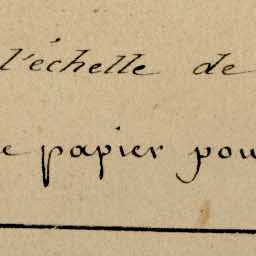 l'échelle de
e papier pou